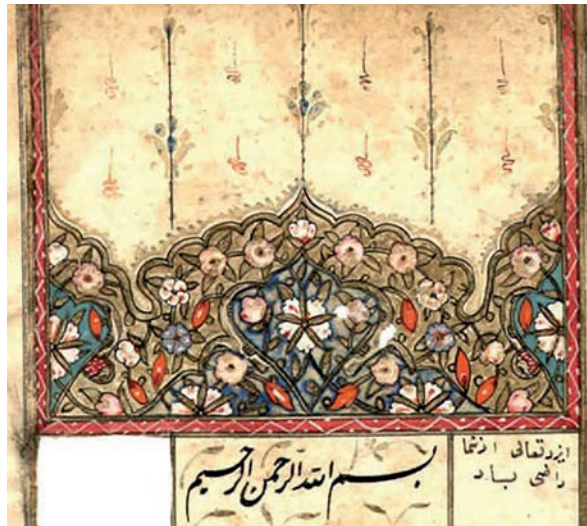 بسم الله الرحمن الرحیم
ایزد تعالی از شما
راضی بباد